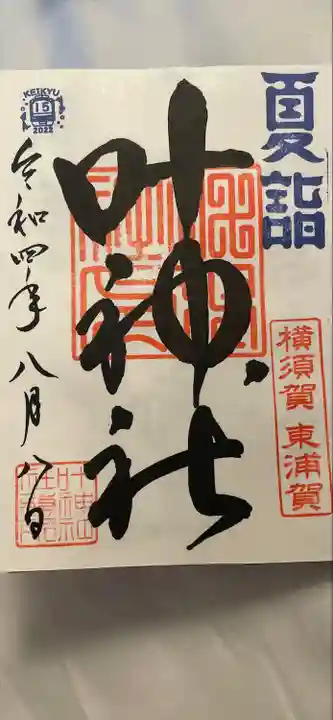 夏詣
横須賀 東浦賀
叶神社
令和四年 八月八日
KEIKYU
15
2022